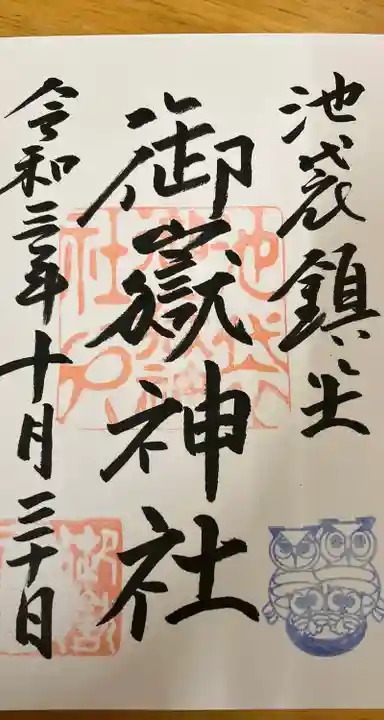 池袋鎮坐
御嶽神社
令和三年十月三十日